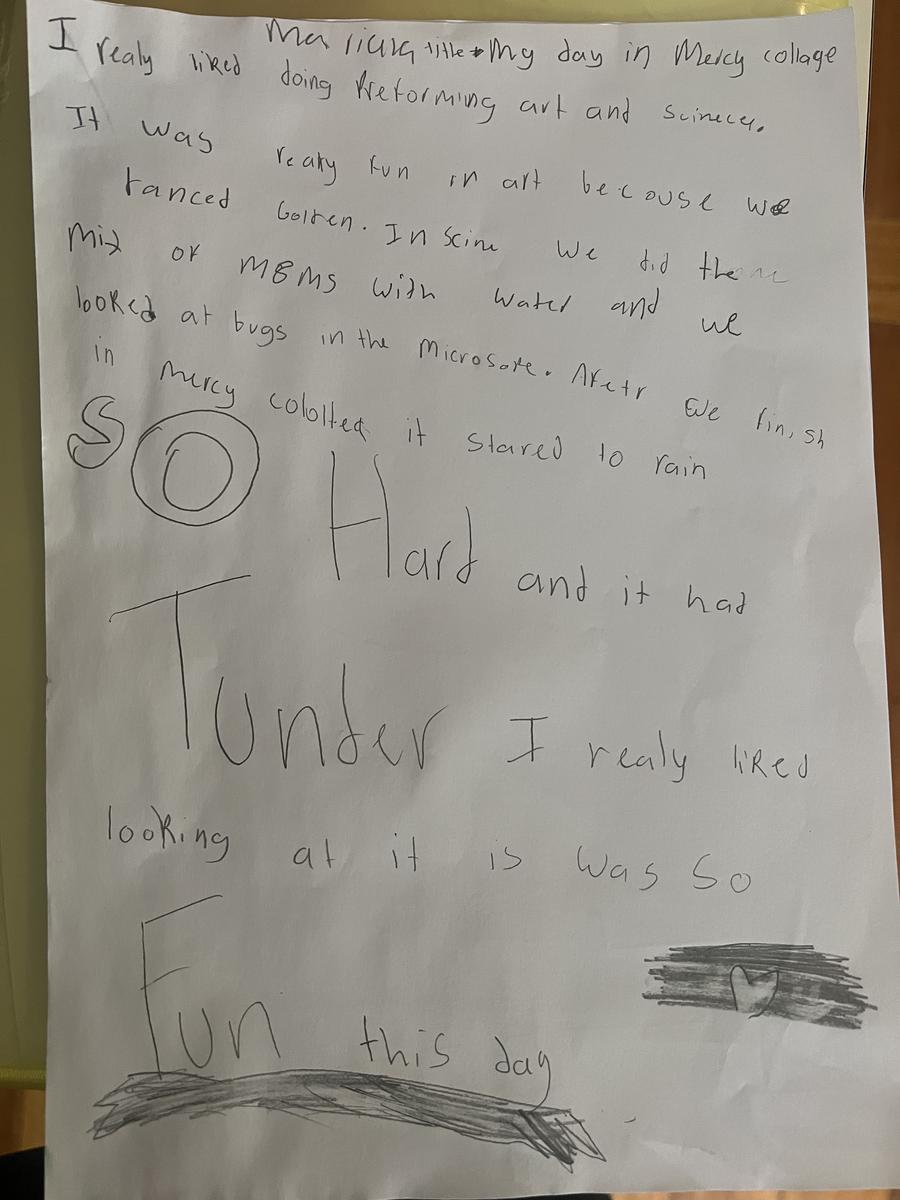 Mariana title → My day in Mercy collage
I realy liked doing Preforming art and scinece.
It was realy fun in art becouse we
tanced Golten. In scine we did the
Mix of M&Ms with water and we
looked at bugs in the microsore. Afetr we finish
in Mercy it stared to rain
SO Hard and it had
Tunder I realy liked
looking at it is was so
Fun this day